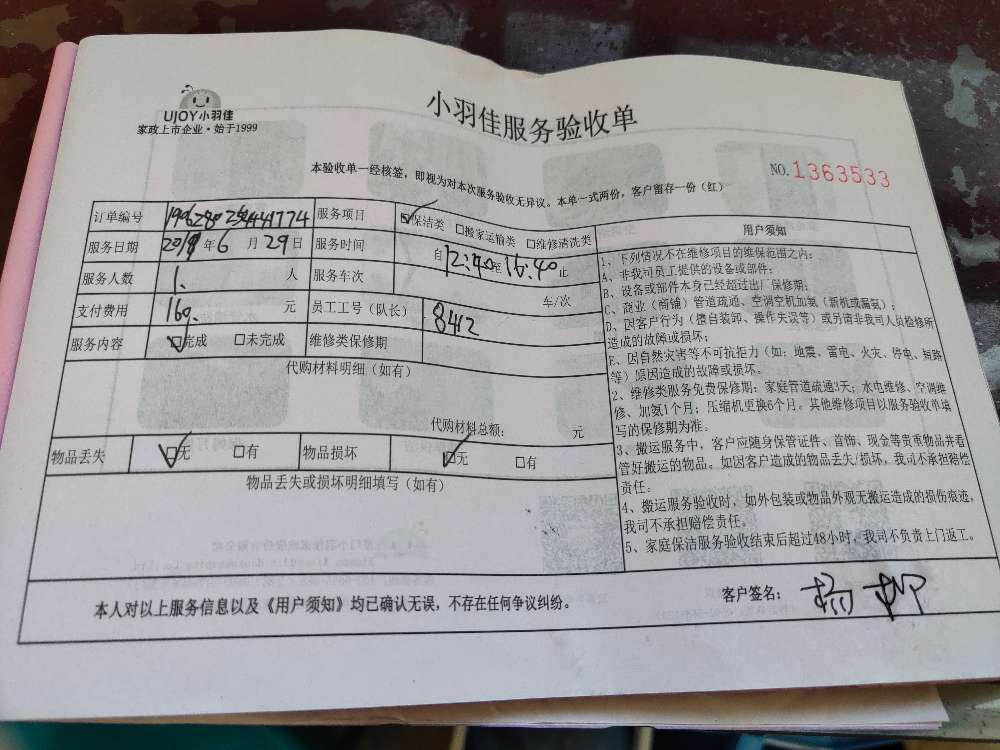 UJOY小羽佳
家政上市企业·始于1999
小羽佳服务验收单
NO.1363533
本验收单一经核签，即视为对本次服务验收无异议。本单一式两份，客户留存一份（红）
订单编号
服务项目 ☑保洁类 □搬家运输类 □维修清洗类
服务日期 2019年6月29日 服务时间 自12:40至16:40止
服务人数 1. 人 服务车次 车/次
支付费用 160. 元 员工工号（队长） 8412
服务内容 ☑完成 □未完成 维修类保修期
代购材料明细（如有）
代购材料总额： 元
物品丢失 ☑无 □有 物品损坏 ☑无 □有
物品丢失或损坏明细填写（如有）
用户须知
1、下列情况不在维修项目的维保范围之内：
A、非我司员工提供的设备或部件；
B、设备或部件本身已经超过出厂保修期；
C、商业（商铺）管道疏通、空调空机加氨（新机或漏氨）；
D、因客户行为（擅自装卸、操作失误等）或另请非我司人员检修所
造成的故障或损坏；
E、因自然灾害等不可抗拒力（如：地震、雷电、火灾、停电、短路
等）原因造成的故障或损坏。
2、维修类服务免费保修期：家庭管道疏通3天；水电维修、空调维
修、加氨1个月；压缩机更换6个月。其他维修项目以服务验收单填
写的保修期为准。
3、搬运服务中，客户应随身保管证件、首饰、现金等贵重物品并看
管好搬运的物品。如因客户造成的物品丢失/损坏，我司不承担赔偿
责任。
4、搬运服务验收时，如外包装或物品外观无搬运造成的损伤痕迹，
我司不承担赔偿责任。
5、家庭保洁服务验收结束后超过48小时，我司不负责上门返工。
本人对以上服务信息以及《用户须知》均已确认无误，不存在任何争议纠纷。
客户签名：杨柳